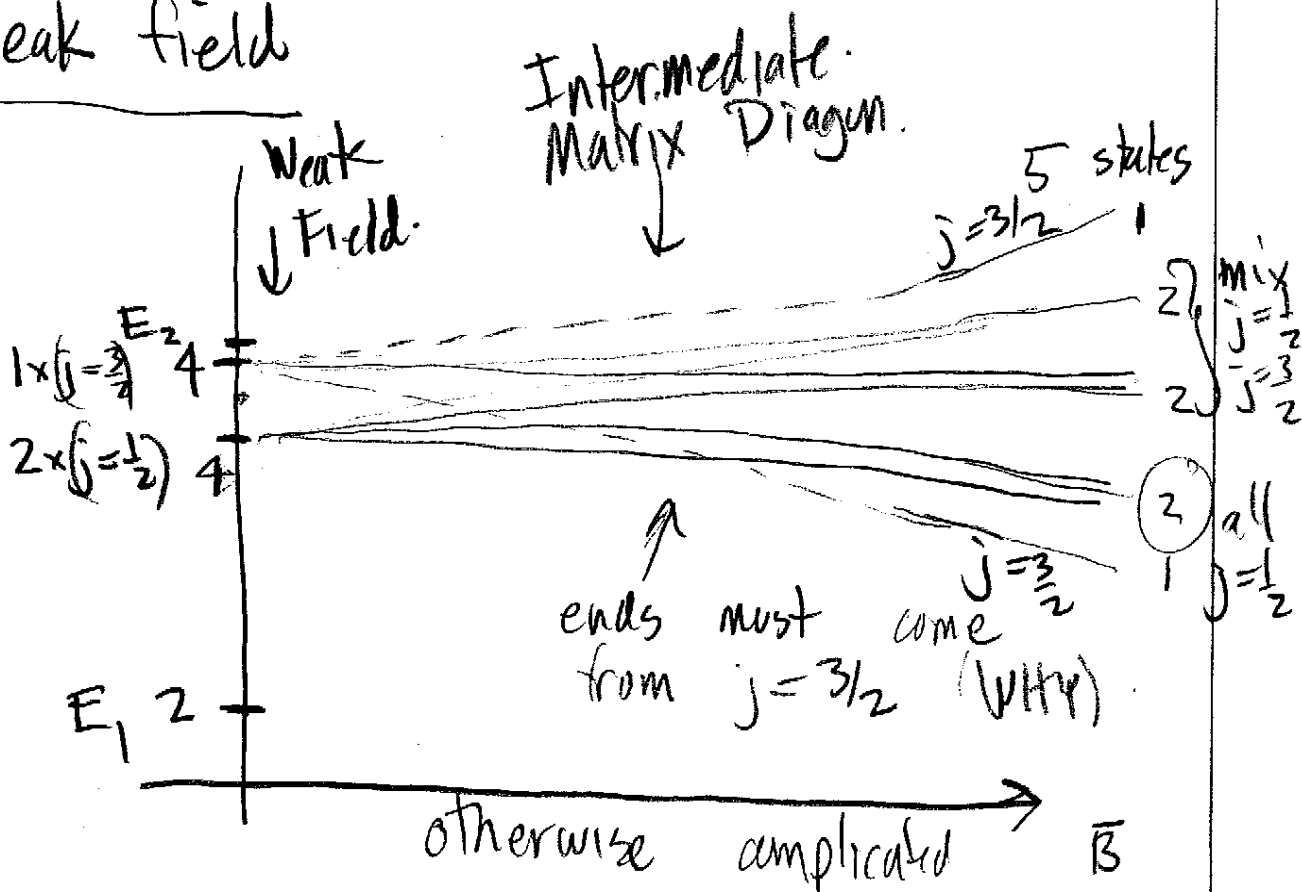 eak field
Intermediate.
Matrix Diagon.
Weak
Field.
5 states
j=3/2
1
2
mix
j=1/2
j=3/2
2
E2
1x(j=3/2) 4
2x(j=1/2) 4
2
all
j=1/2
j=3/2
1
ends must come
from j=3/2 (WHY)
E1 2
otherwise complicated
B̄